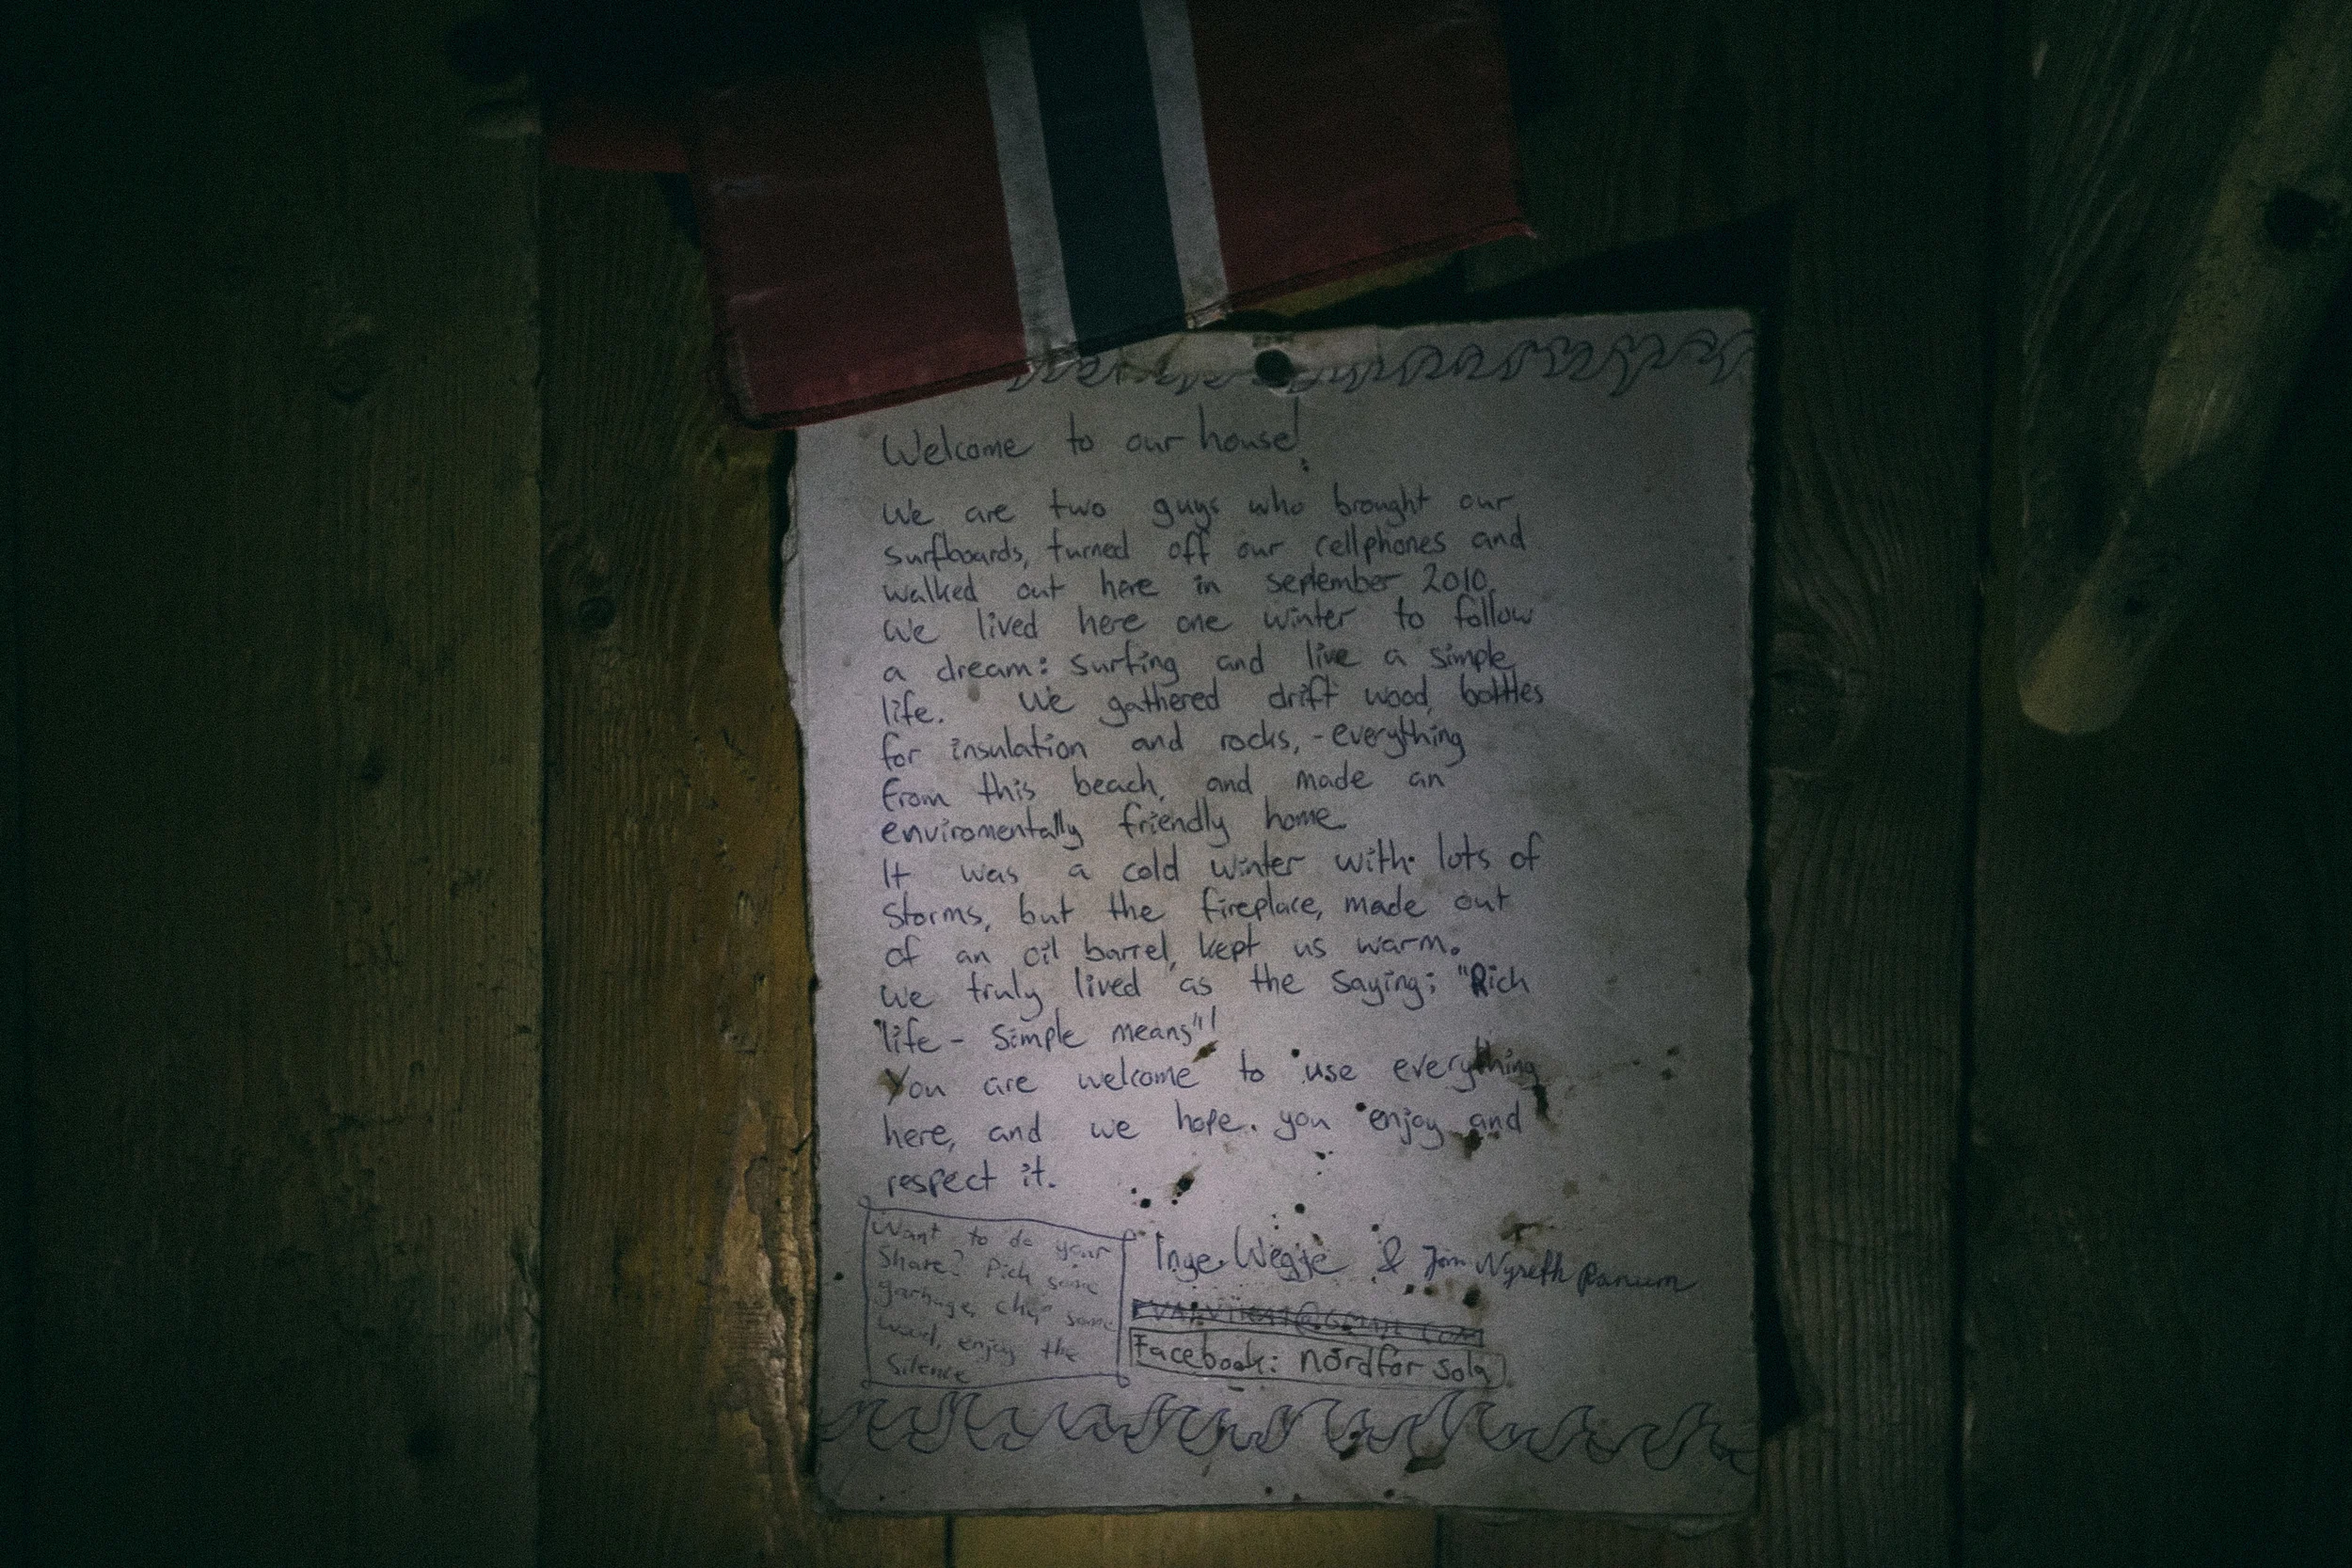 Welcome to our house!
We are two guys who brought our
surfboards, turned off our cellphones and
walked out here in september 2010.
We lived here one winter to follow
a dream: surfing and live a simple
life. We gathered drift wood, bottles
for insulation and rocks, - everything
from this beach, and made an
enviromentally friendly home
It was a cold winter with lots of
storms, but the fireplace, made out
of an oil barrel, kept us warm.
We truly lived as the saying; "Rich
life - simple means"!
You are welcome to use everything
here, and we hope you enjoy and
respect it.
Want to do your
share? Pick some
garbage, chop some
wood, enjoy the
silence
Inge Wegge & Jørn Nyseth Ranum
Facebook: nordfor sola